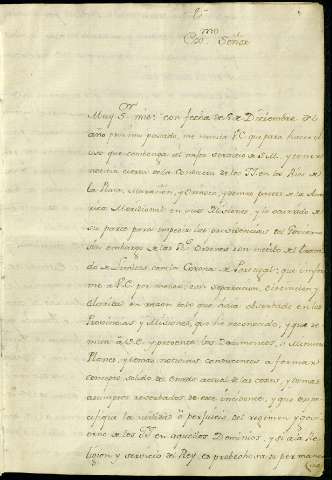 Exmo. Señor
Muy Sr. mio: con fecha de 6 de Diziembre del
año proximo pasado, me V.E. que para hacer el
uso que combenga al mejor servicio de S.M. y tener
noticia cierta de la Conducta de los PP. en los Rios de
la Plata, Marañon, y Orinoco, y demas partes de la Ame-
rica Meridional en sus Misiones, y lo obrado de
su parte para impedir las de
sin embargo de las Rs. Ordenes con motivo del Trata-
do de Limites con la Corona de Portugal; que infor-
me a V.E. por menor, con separacion, distincion y
claridad en razon de lo que haia observado en las
Provincias, y Misiones, que he reconocido, y que re-
mita a V.E. y presente los Documentos, o Memorias,
Planos, y demas noticias conducentes a formar
concepto solido del estado actual de las cosas, y demas
asumptos reservados de este incidente, y que espe-
cifique la utilidad, o perjuicio del regimen y govi-
erno de los PP. en aquellos Dominios, y si a la Re-
ligion y servicio del Rey es probechosa su perman-